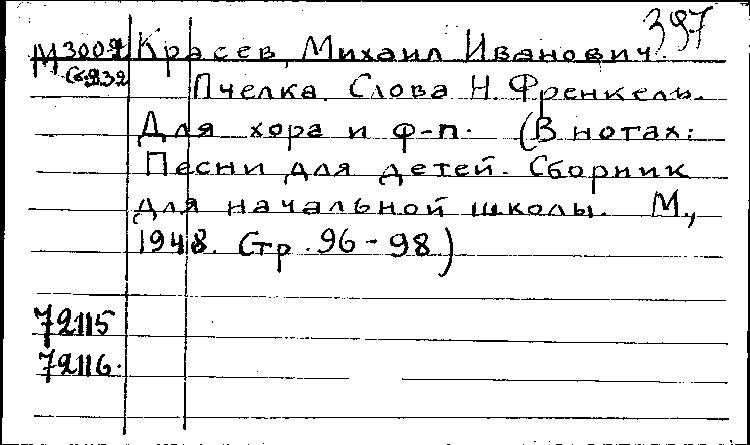 397
М 3009 Красев, Михаил Иванович.
Сб232 Пчелка. Слова Н. Френкель.
Для хора и ф-п. (В нотах:
Песни для детей. Сборник
для начальной школы. М.,
1948. Стр. 96-98)
72115
72116.